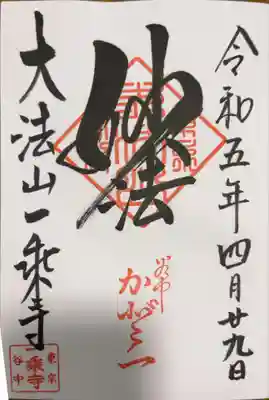 令和五年四月廿九日
妙法
谷中
大法山一乗寺
東京
谷中
一乗寺